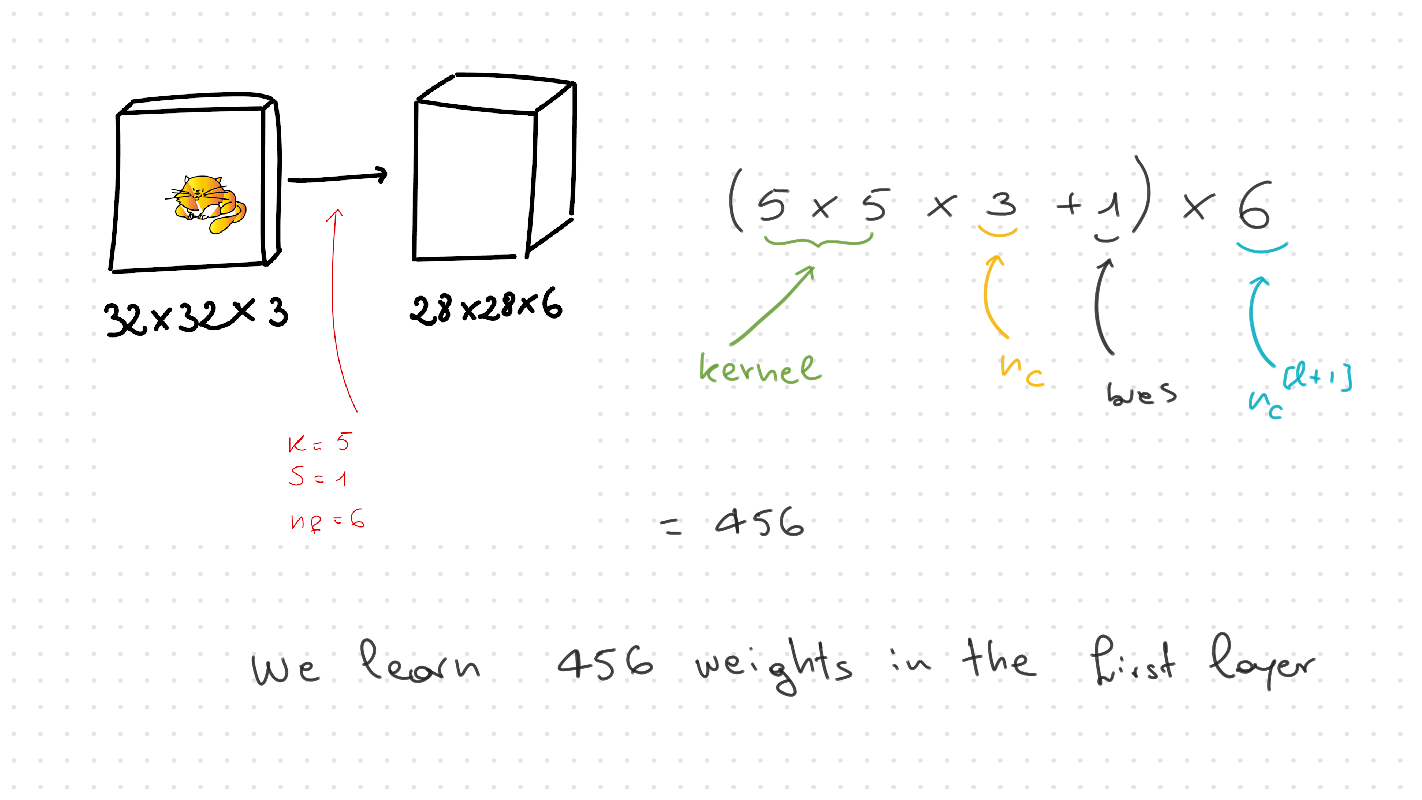 32×32×3
28×28×6
K=5
S=1
nf=6
(5 × 5 × 3 + 1) × 6
kernel
nc
nc[l+1]
= 456
we learn 456 weights in the first layer